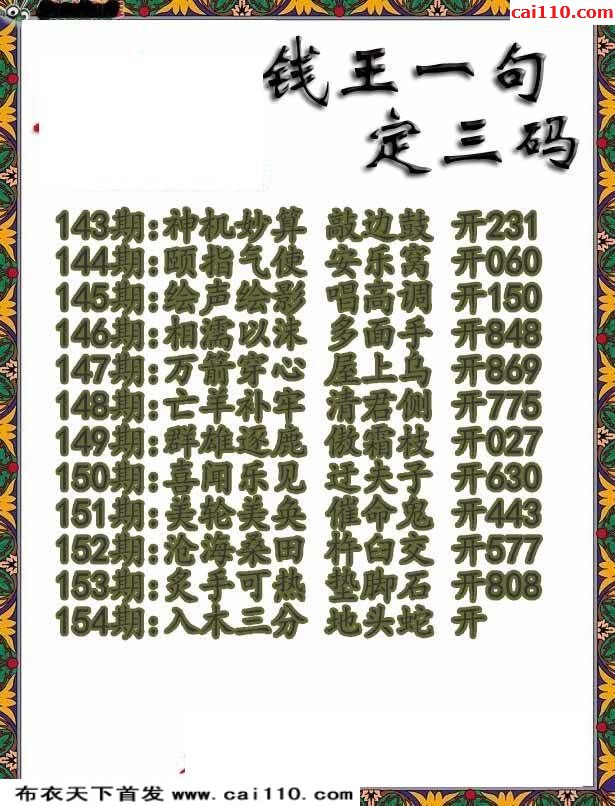 cai110.com
钱王一句
定三码
143期:神机妙算 敲边鼓 开231
144期:颐指气使 安乐窝 开060
145期:绘声绘影 唱高调 开150
146期:相濡以沫 多面手 开848
147期:万箭穿心 屋上乌 开869
148期:亡羊补牢 清君侧 开775
149期:群雄逐鹿 傲霜枝 开027
150期:喜闻乐见 迂夫子 开630
151期:美轮美奂 催命鬼 开443
152期:沧海桑田 杵臼交 开577
153期:炙手可热 垫脚石 开808
154期:入木三分 地头蛇 开
布衣天下首发 www.cai110.com